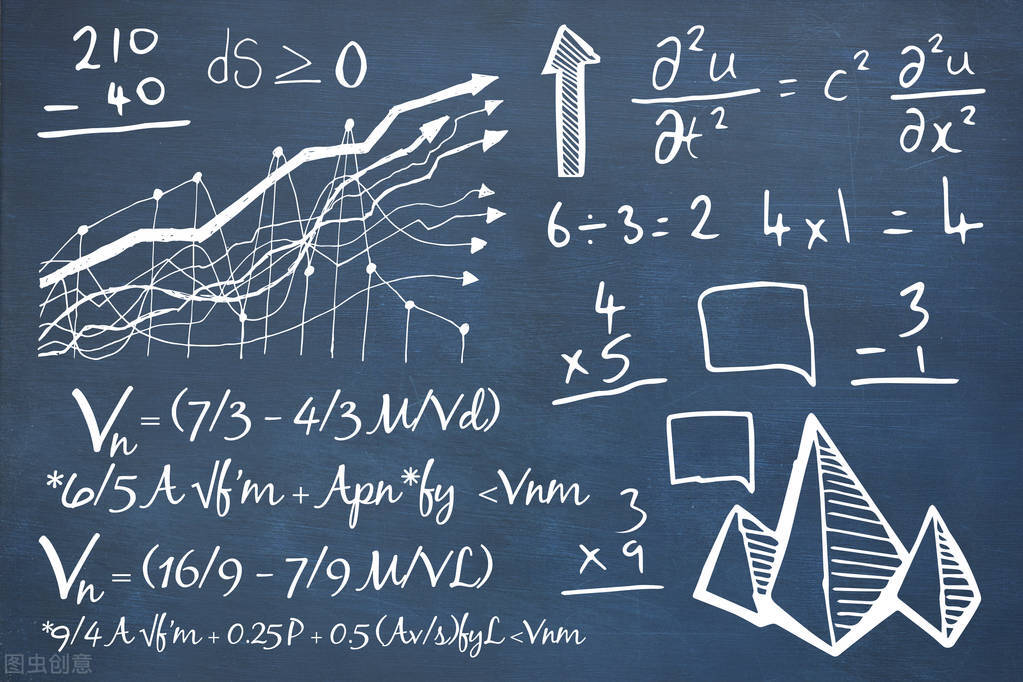 210
- 40
dS ≥ 0
∂²u/∂t² = c² ∂²u/∂x²
6÷3=2 4x1 = 4
4
x5
3
- 1
Vn = (7/3 - 4/3 M/Vd)
*6/5 A √f'm + Apn*fy <Vnm
3
x 9
Vn = (16/9 - 7/9 M/VL)
*9/4 A √f'm + 0.25P + 0.5 (Av/s)fyL <Vnm
图虫创意